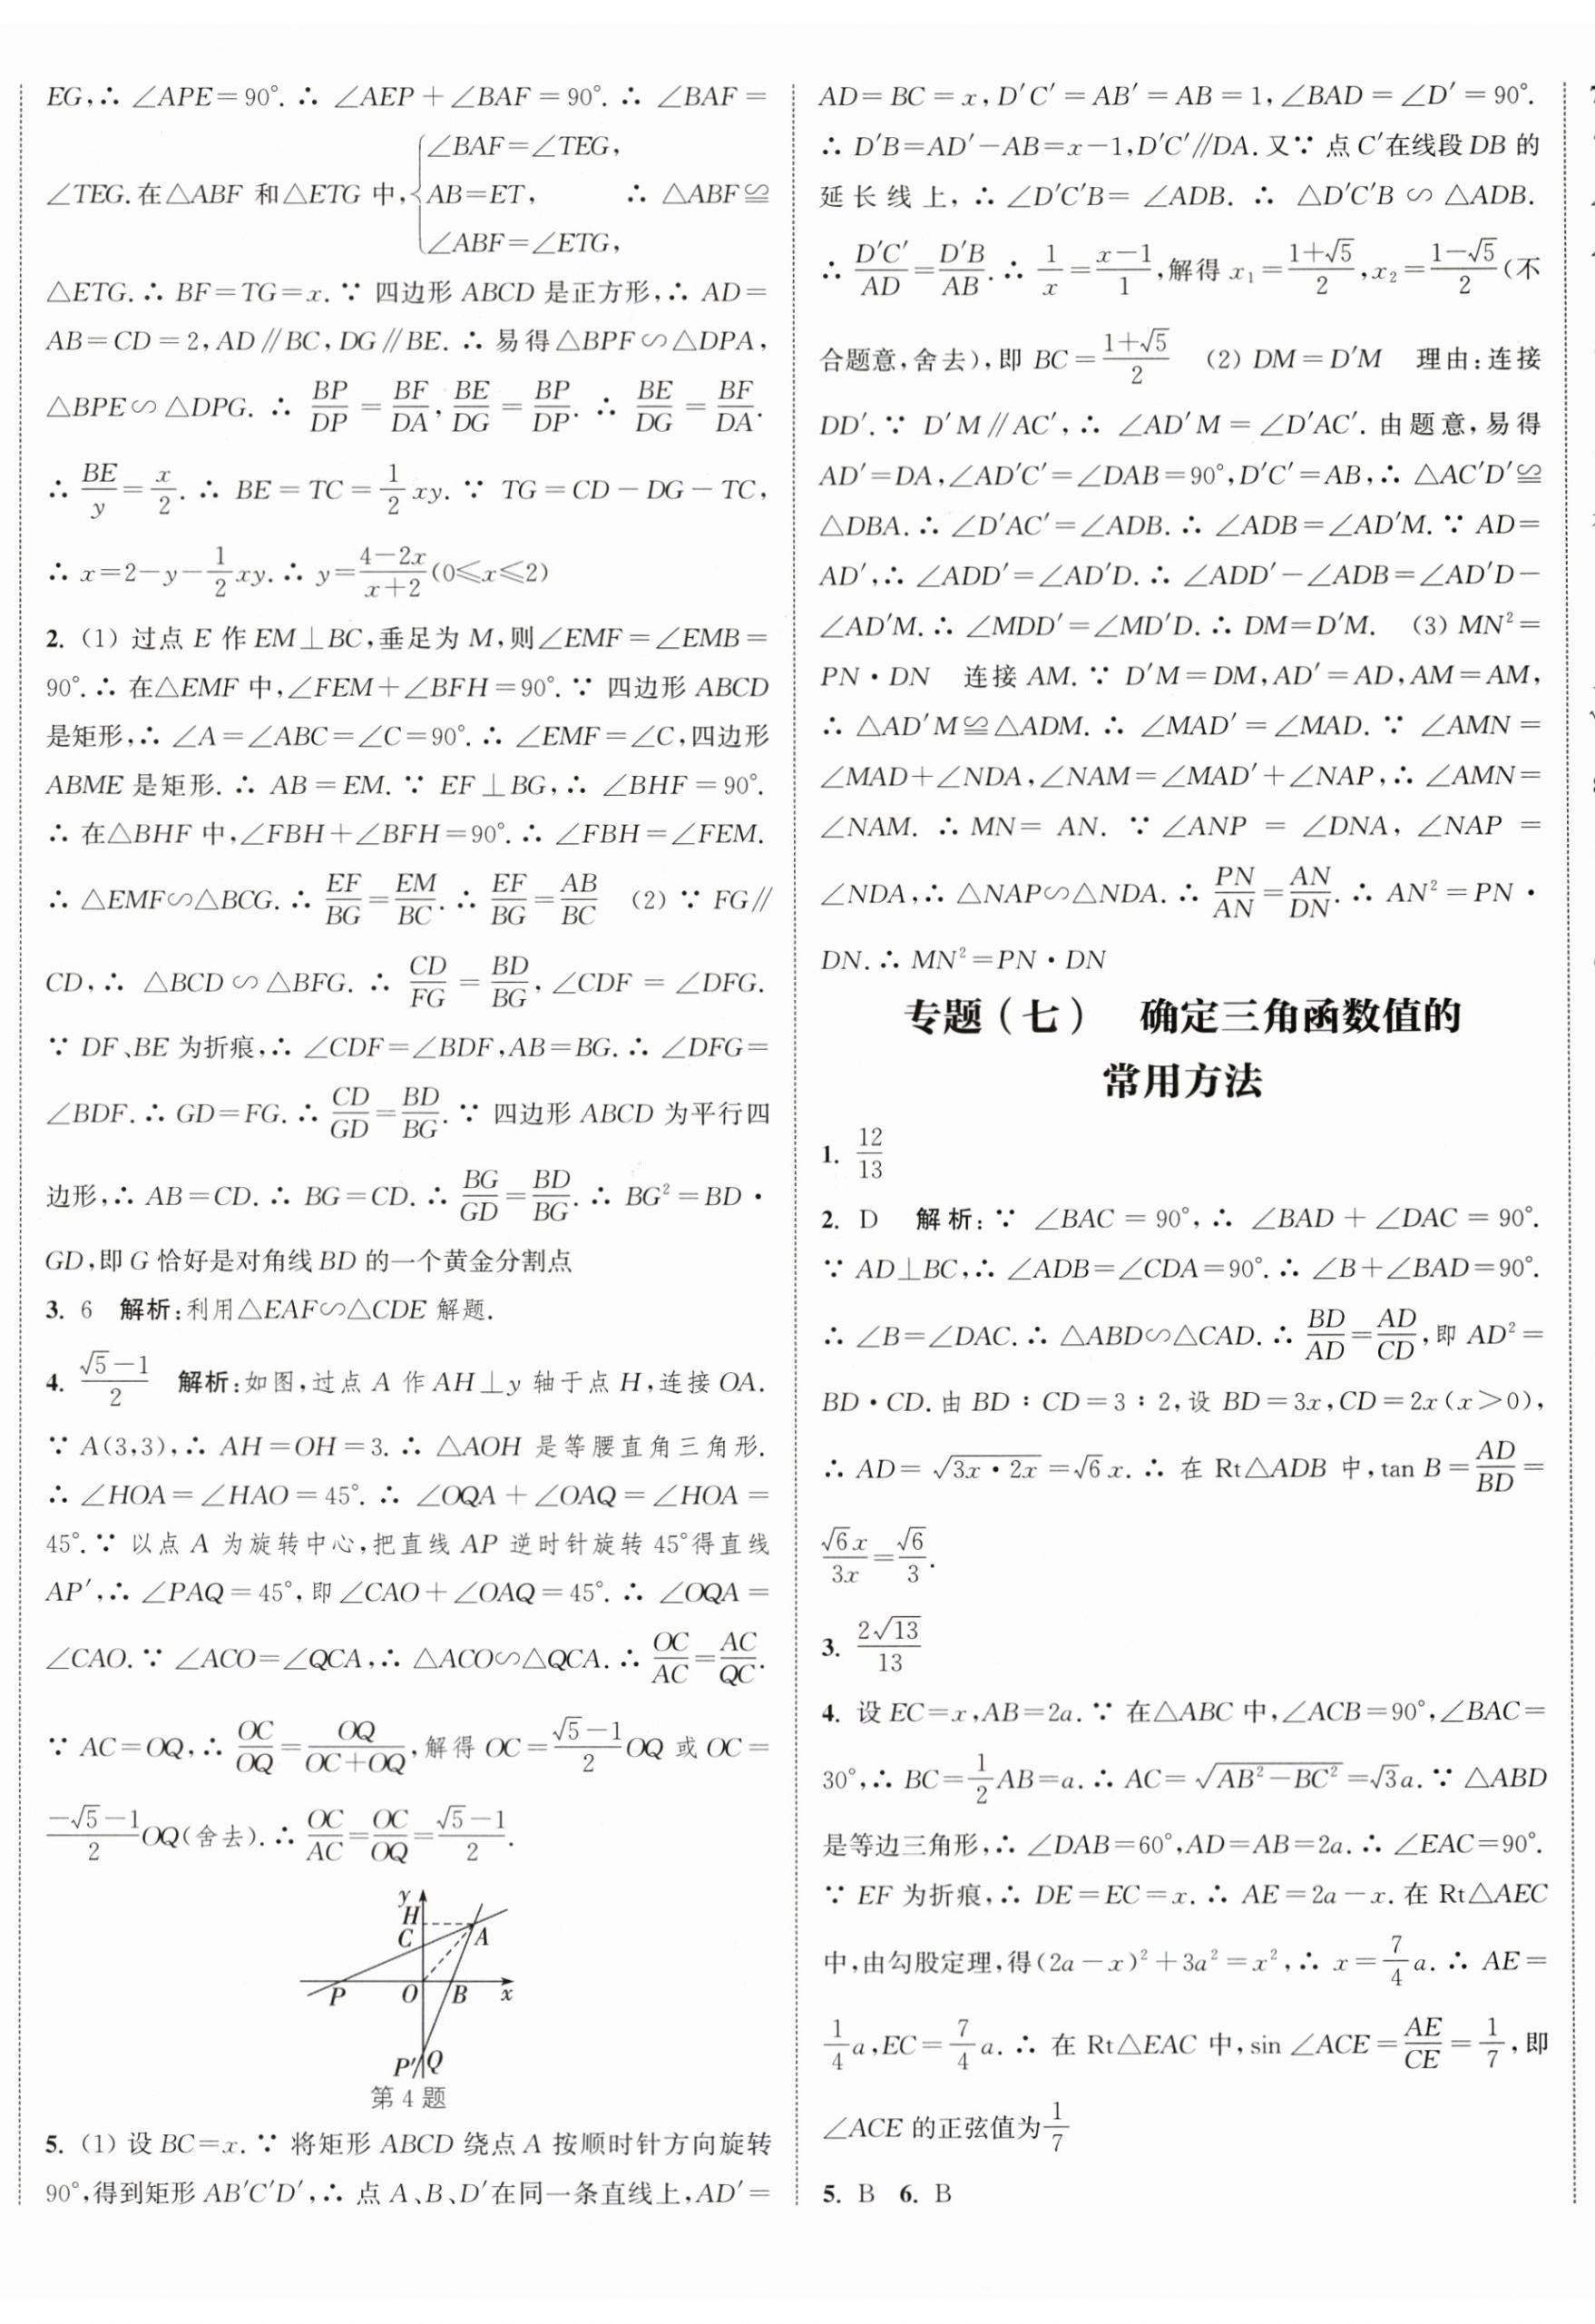 EG,∴ ∠APE=90°.∴ ∠AEP+∠BAF=90°.∴ ∠BAF=
∠TEG.在△ABF 和△ETG 中,{∠BAF=∠TEG, AB=ET, ∠ABF=∠ETG, ∴ △ABF≌
△ETG.∴ BF=TG=x.∵ 四边形 ABCD 是正方形,∴ AD=
AB=CD=2,AD∥BC,DG∥BE.∴ 易得△BPF∽△DPA,
△BPE∽△DPG.∴ BP/DP=BF/DA,BE/DG=BP/DP.∴ BE/DG=BF/DA.
∴ BE/y=x/2.∴ BE=TC=1/2 xy.∵ TG=CD-DG-TC,
∴ x=2-y-1/2 xy.∴ y=(4-2x)/(x+2)(0≤x≤2)
2. (1) 过点 E 作 EM⊥BC,垂足为 M,则∠EMF=∠EMB=
90°.∴ 在△EMF 中,∠FEM+∠BFH=90°.∵ 四边形 ABCD
是矩形,∴ ∠A=∠ABC=∠C=90°.∴ ∠EMF=∠C,四边形
ABME 是矩形.∴ AB=EM.∵ EF⊥BG,∴ ∠BHF=90°.
∴ 在△BHF 中,∠FBH+∠BFH=90°.∴ ∠FBH=∠FEM.
∴ △EMF∽△BCG.∴ EF/BG=EM/BC.∴ EF/BG=AB/BC (2) ∵ FG∥
CD,∴ △BCD∽△BFG.∴ CD/FG=BD/BG,∠CDF=∠DFG.
∵ DF、BE 为折痕,∴ ∠CDF=∠BDF,AB=BG.∴ ∠DFG=
∠BDF.∴ GD=FG.∴ CD/GD=BD/BG.∵ 四边形 ABCD 为平行四
边形,∴ AB=CD.∴ BG=CD.∴ BG/GD=BD/BG.∴ BG²=BD·
GD,即 G 恰好是对角线 BD 的一个黄金分割点
3. 6 解析:利用△EAF∽△CDE 解题.
4. (√5-1)/2 解析:如图,过点 A 作 AH⊥y 轴于点 H,连接 OA.
∵ A(3,3),∴ AH=OH=3.∴ △AOH 是等腰直角三角形.
∴ ∠HOA=∠HAO=45°.∴ ∠OQA+∠OAQ=∠HOA=
45°.∵ 以点 A 为旋转中心,把直线 AP 逆时针旋转 45°得直线
AP′,∴ ∠PAQ=45°,即∠CAO+∠OAQ=45°.∴ ∠OQA=
∠CAO.∵ ∠ACO=∠QCA,∴ △ACO∽△QCA.∴ OC/AC=AC/QC.
∵ AC=OQ,∴ OC/OQ=OQ/(OC+OQ),解得 OC=(√5-1)/2 OQ 或 OC=
(-√5-1)/2 OQ(舍去).∴ OC/AC=OC/OQ=(√5-1)/2.
y
H
C
A
P
O
B
x
P′
Q
第 4 题
5. (1) 设 BC=x.∵ 将矩形 ABCD 绕点 A 按顺时针方向旋转
90°,得到矩形 AB′C′D′,∴ 点 A、B、D′在同一条直线上,AD′=
AD=BC=x,D′C′=AB′=AB=1,∠BAD=∠D′=90°.
∴ D′B=AD′-AB=x-1,D′C′∥DA.又∵ 点 C′在线段 DB 的
延长线上,∴ ∠D′C′B=∠ADB.∴ △D′C′B∽△ADB.
∴ D′C′/AD=D′B/AB.∴ 1/x=(x-1)/1,解得 x₁=(1+√5)/2,x₂=(1-√5)/2(不
合题意,舍去),即 BC=(1+√5)/2 (2) DM=D′M 理由:连接
DD′.∵ D′M∥AC′,∴ ∠AD′M=∠D′AC′.由题意,易得
AD′=DA,∠AD′C′=∠DAB=90°,D′C′=AB,∴ △AC′D′≌
△DBA.∴ ∠D′AC′=∠ADB.∴ ∠ADB=∠AD′M.∵ AD=
AD′,∴ ∠ADD′=∠AD′D.∴ ∠ADD′-∠ADB=∠AD′D-
∠AD′M.∴ ∠MDD′=∠MD′D.∴ DM=D′M. (3) MN²=
PN·DN 连接 AM.∵ D′M=DM,AD′=AD,AM=AM,
∴ △AD′M≌△ADM.∴ ∠MAD′=∠MAD.∵ ∠AMN=
∠MAD+∠NDA,∠NAM=∠MAD′+∠NAP,∴ ∠AMN=
∠NAM.∴ MN=AN.∵ ∠ANP=∠DNA,∠NAP=
∠NDA,∴ △NAP∽△NDA.∴ PN/AN=AN/DN.∴ AN²=PN·
DN.∴ MN²=PN·DN
专题(七) 确定三角函数值的
常用方法
1. 12/13
2. D 解析:∵ ∠BAC=90°,∴ ∠BAD+∠DAC=90°.
∵ AD⊥BC,∴ ∠ADB=∠CDA=90°.∴ ∠B+∠BAD=90°.
∴ ∠B=∠DAC.∴ △ABD∽△CAD.∴ BD/AD=AD/CD,即 AD²=
BD·CD.由 BD∶CD=3∶2,设 BD=3x,CD=2x(x>0),
∴ AD=√(3x·2x)=√6 x.∴ 在 Rt△ADB 中,tan B=AD/BD=
√6 x/3x=√6/3.
3. 2√13/13
4. 设 EC=x,AB=2a.∵ 在△ABC 中,∠ACB=90°,∠BAC=
30°,∴ BC=1/2 AB=a.∴ AC=√(AB²-BC²)=√3a.∵ △ABD
是等边三角形,∴ ∠DAB=60°,AD=AB=2a.∴ ∠EAC=90°.
∵ EF 为折痕,∴ DE=EC=x.∴ AE=2a-x.在 Rt△AEC
中,由勾股定理,得(2a-x)²+3a²=x²,∴ x=7/4 a.∴ AE=
1/4 a,EC=7/4 a.∴ 在 Rt△EAC 中,sin ∠ACE=AE/CE=1/7,即
∠ACE 的正弦值为1/7
5. B 6. B